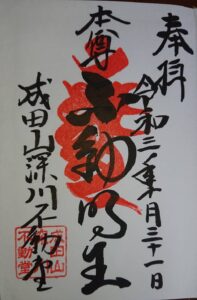 奉拝
令和三年一月三十一日
本尊
不動明王
成田山深川不動堂
成田山
不動堂